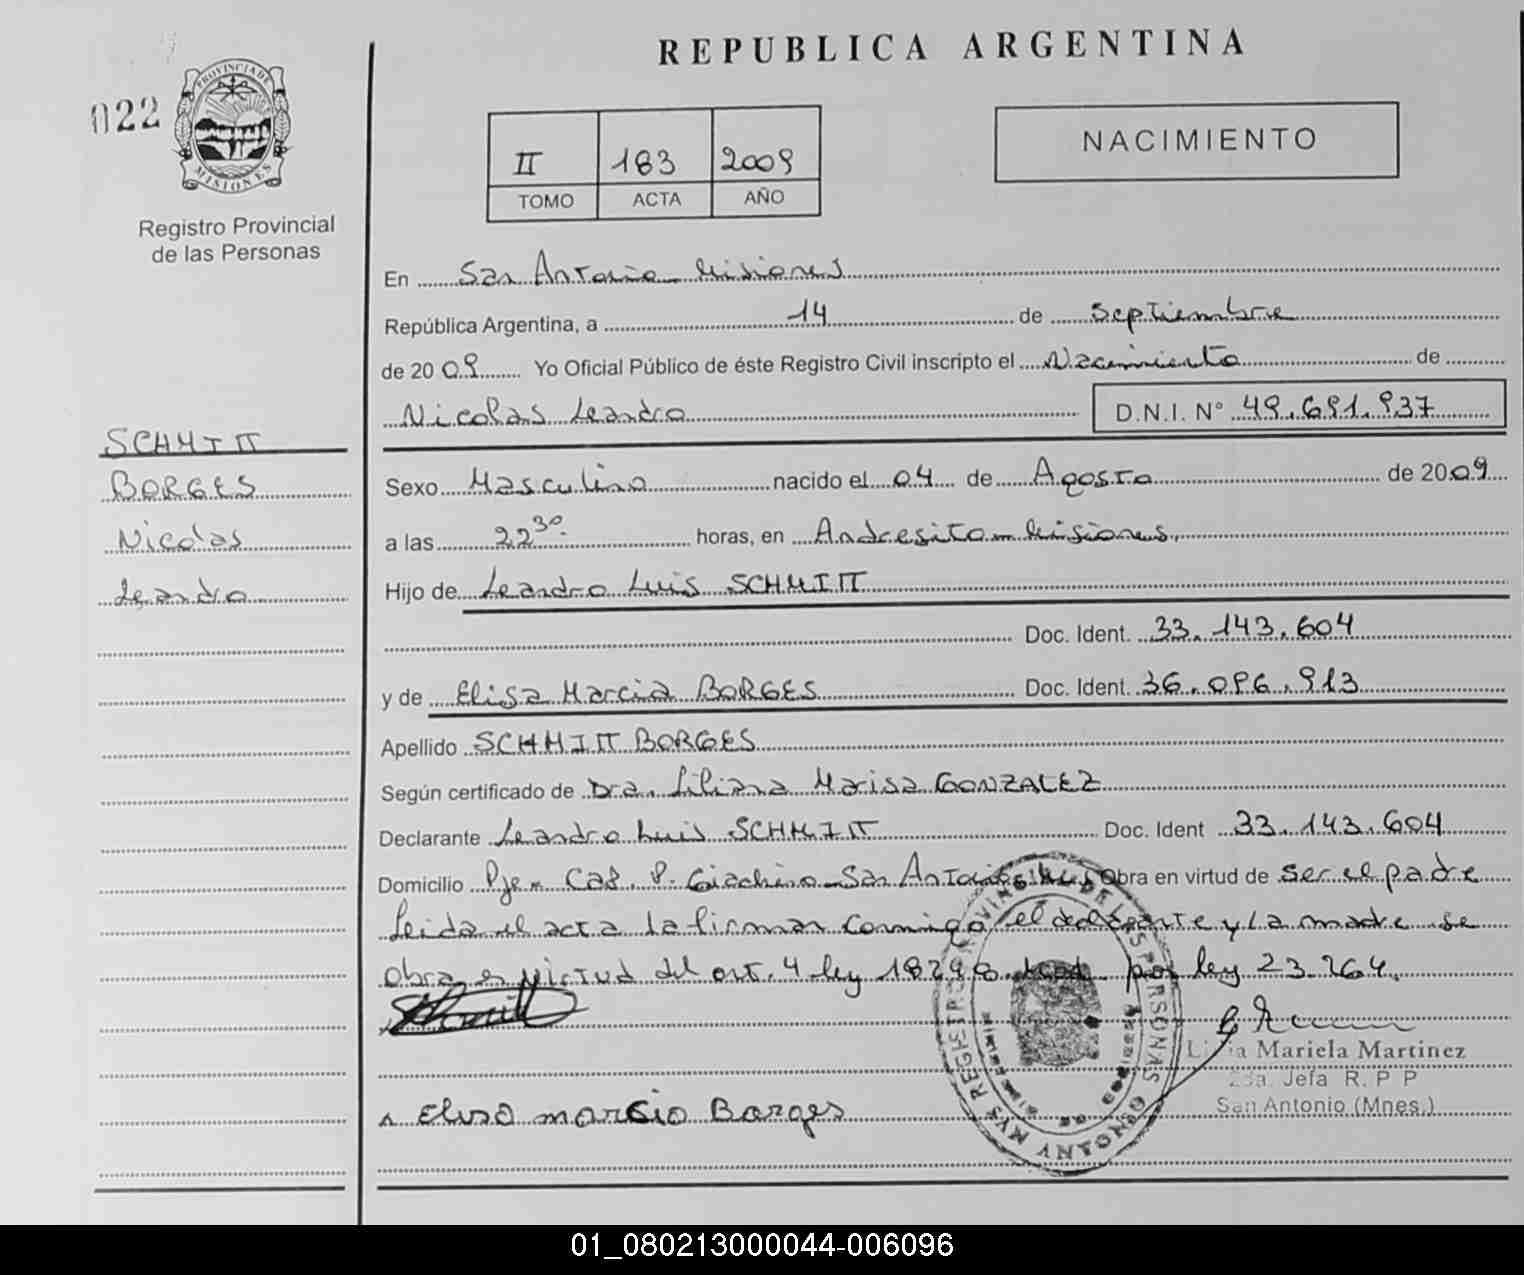 REPUBLICA ARGENTINA
022
PROVINCIA DE
MISIONES
Registro Provincial
de las Personas
II 183 2009
TOMO ACTA AÑO
NACIMIENTO
En San Antonio Misiones
República Argentina, a 14 de Septiembre
de 2009 Yo Oficial Público de éste Registro Civil inscripto el Nacimiento de
Nicolas Leandro D.N.I. N° 49.691.937
SCHMITT
BORGES
Nicolas
Leandro
Sexo Masculino nacido el 04 de Agosto de 2009
a las 22 30 horas, en Andresito Misiones.
Hijo de Leandro Luis SCHMITT
Doc. Ident. 33.143.604
y de Elisa Marcia BORGES Doc. Ident. 36.096.913
Apellido SCHMITT BORGES
Según certificado de Dra. Liliana Marisa GONZALEZ
Declarante Leandro Luis SCHMITT Doc. Ident 33.143.604
Domicilio Pje. Cab. P. Giachino San Antonio Obra en virtud de ser el padre
Leida el acta la firman conmigo el declarante y La madre se
obra en virtud del art. 4 ley 18248 mod. por ley 23.264.
Elisa marcia Borges
Mariela Martinez
2da. Jefa R. P P
San Antonio (Mnes.)
01_080213000044-006096